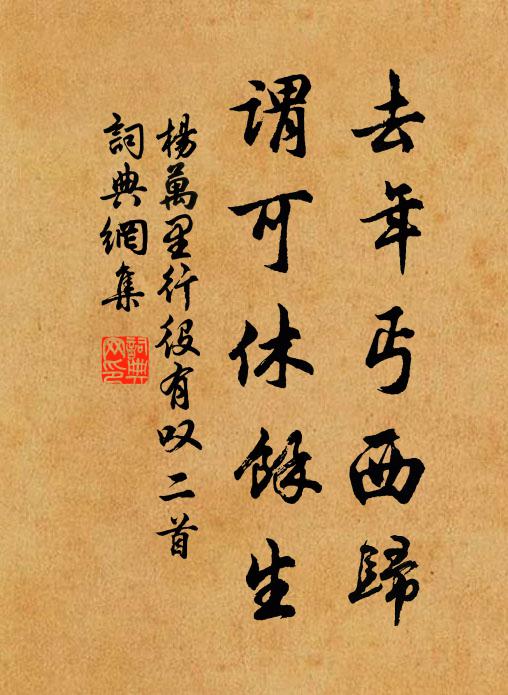 去年丐西歸
謂可休餘生
楊萬里行役有叹二首
詞典網集
詞典
网印